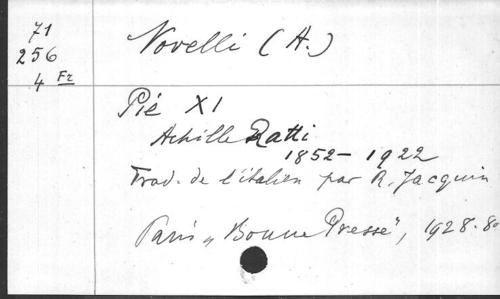 71
256
4 Fr
Novelli (A.)
Pié XI
Achille Ratti
1852-1922
Trad. de l'italien par R. Jacquin
Paris, "Bonne Presse", 1928. 8o